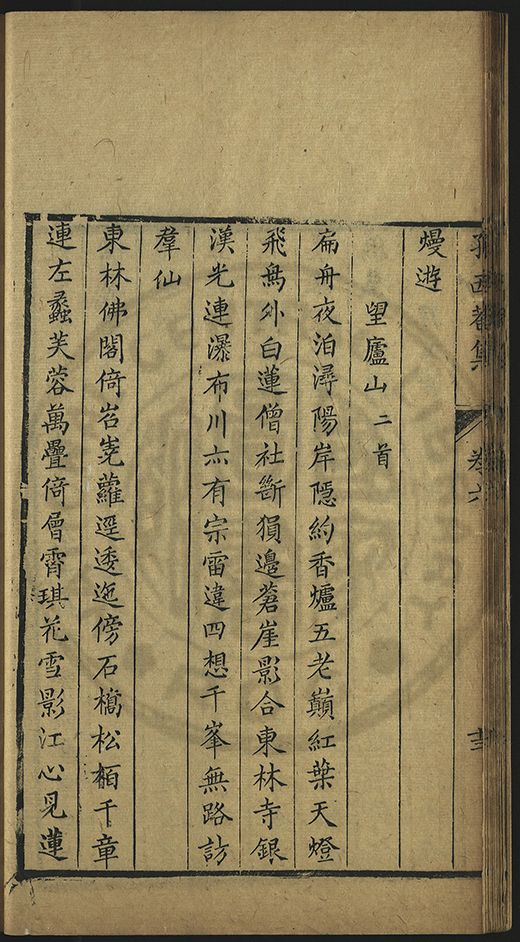 熳遊
望廬山二首
扁舟夜泊潯陽岸隱約香爐五老巔紅葉天燈
飛鳥外白蓮僧社斷猿邊蒼崖影合東林寺銀
漢光連瀑布川亦有宗雷違四想千峯無路訪
羣仙
東林佛閣倚岩嶤蘿逕逶迤傍石橋松栢千章
連左蠡芙蓉萬疊倚層霄琪花雪影江心見蓮
卷六